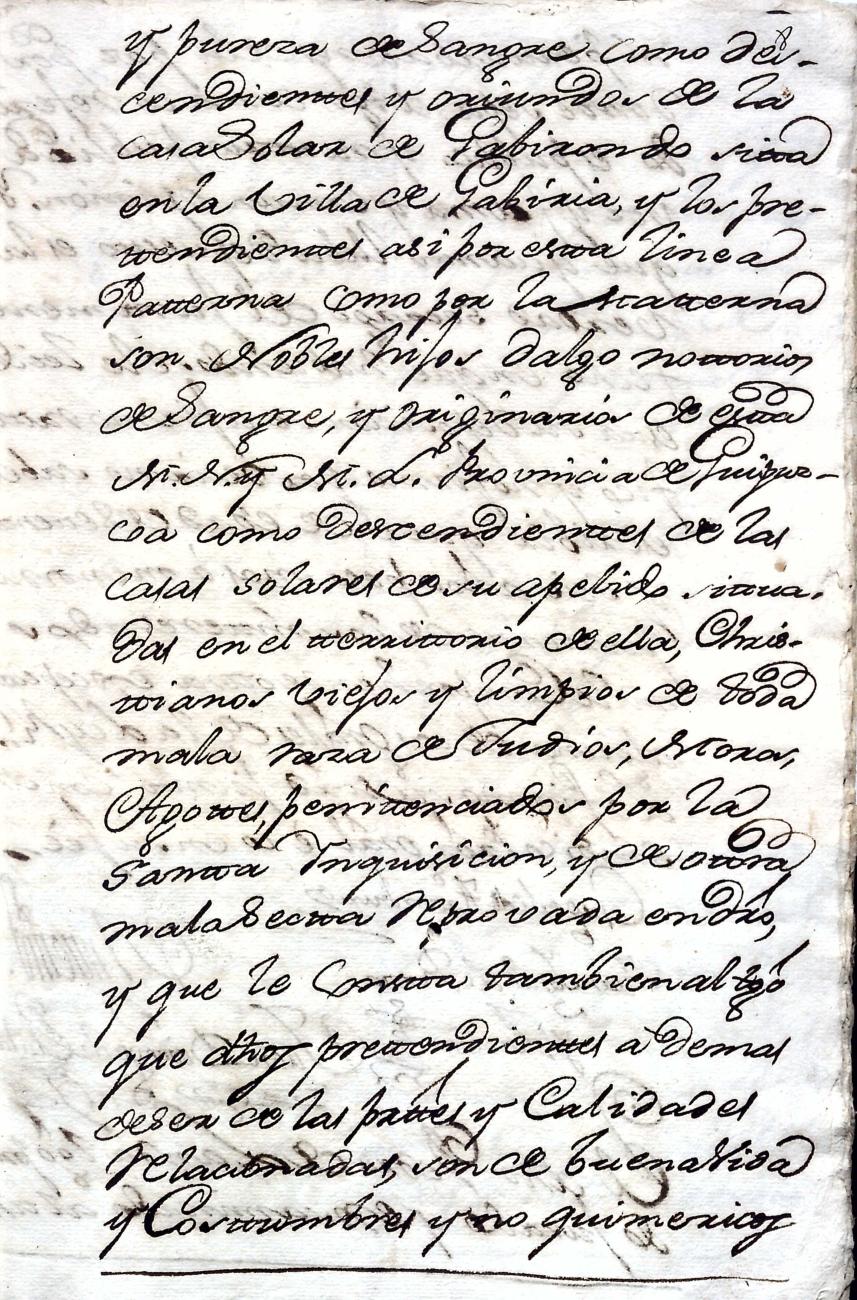 y pureza de Sangre como des-
cendientes y oriundos de la
casa Solar de Gabirondo sitta
en la Villa de Gabiria, y los pre-
ttendienttes asi por estta linea
Patterna como por la Matterna
son Nobles hijos dalgo nottorios
de Sangre, y originarios de estta
M. N. y M. L. Provincia de Guipuz-
coa como Descendienttes de las
casas solares de su apelido sittua-
das en el tterrittorio de ella, Chris-
ttianos viejos y limpios de toda
mala raza de Judios, Moros,
Agottes, penittenciados por la
Santta Inquisicion, y de ottra
mala Sectta Reprovada en dro,
y que le Constta tambien al tgo
que dhos prettendienttes a demas
de ser de las parttes y Calidades
Relacionadas, son de buena Vida
y Costtumbres y no quimericos